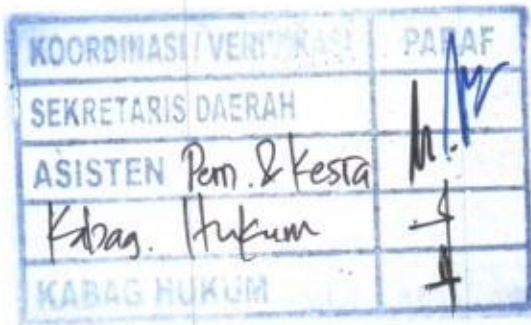 KOORDINASI / VERIFIKASI PARAF
SEKRETARIS DAERAH
ASISTEN Pem. & Kesra
Kabag. Hukum
KABAG HUKUM